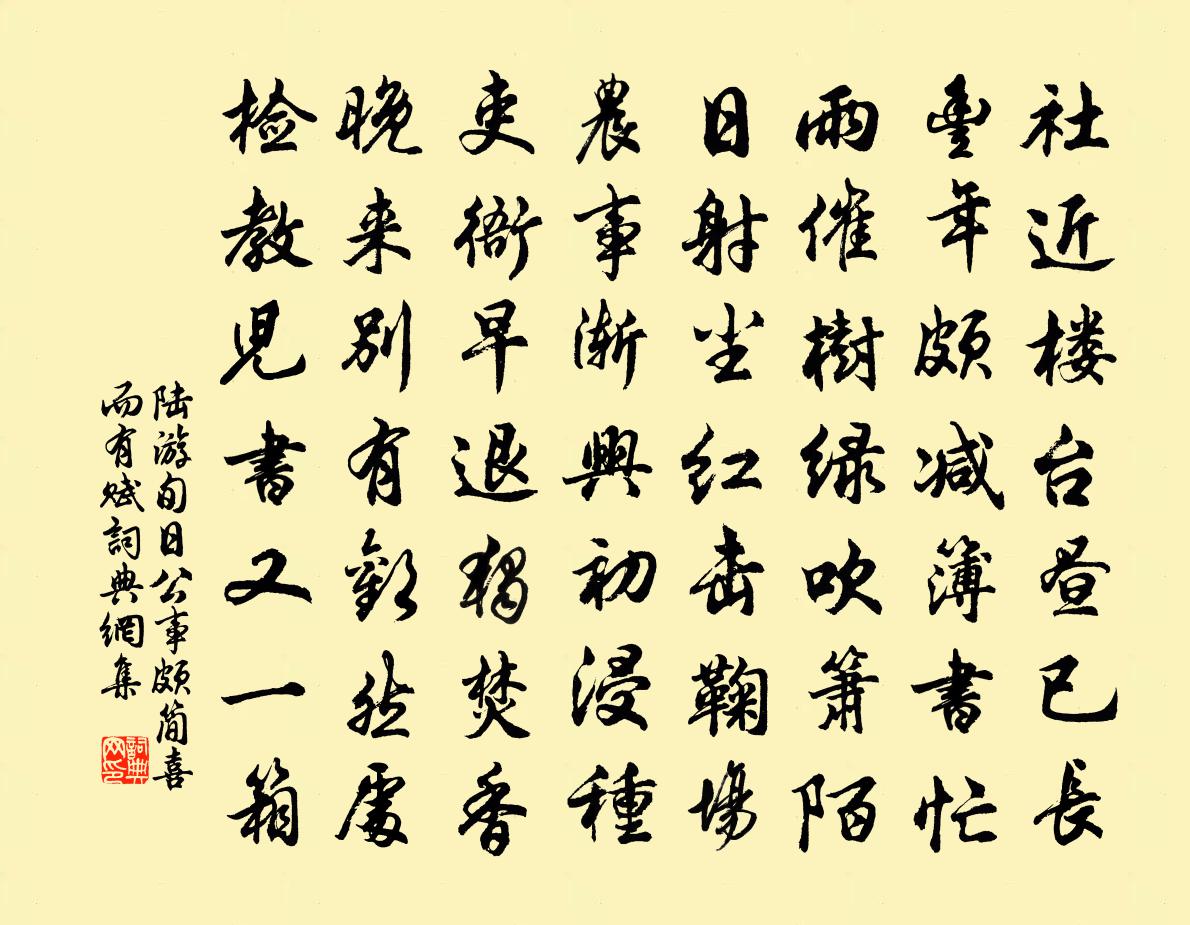 社近楼台昼已長
豊年頗减簿書忙
雨催樹绿吹簫陌
日射尘红击鞠場
農事渐興初浸種
吏衙早退独焚香
晚来别有歡然處
检教兒書又一箱
陆游旬日公事頗简喜
而有赋詞典網集
詞典网印